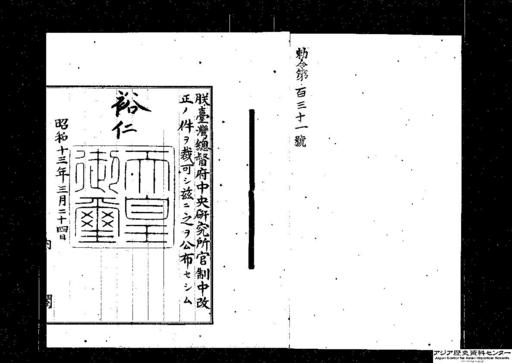 勅令第百三十一號
朕臺灣總督府中央研究所官制中改
正ノ件ヲ裁可シ茲ニ之ヲ公布セシム
裕仁
天皇
御璽
昭和十三年三月二十四日
内閣
アジア歴史資料センター
Japan Center for Asian Historical Records